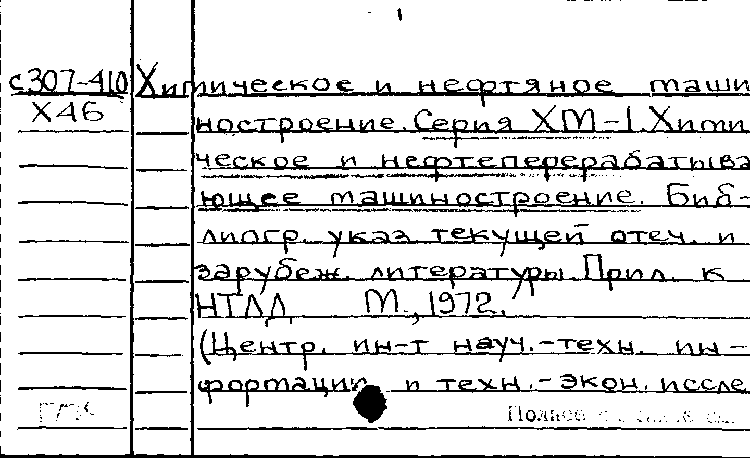 с307-410 Химическое и нефтяное маши
Х46 ностроение. Серия ХМ-1. Хими
ческое и нефтеперерабатыва
ющее машиностроение. Биб-
лиогр. указ текущей отеч. и
зарубеж. литературы. Прил. к
НТЛД М., 1972.
(Центр. ин-т науч.-техн. ин-
формации и техн.-экон. иссле